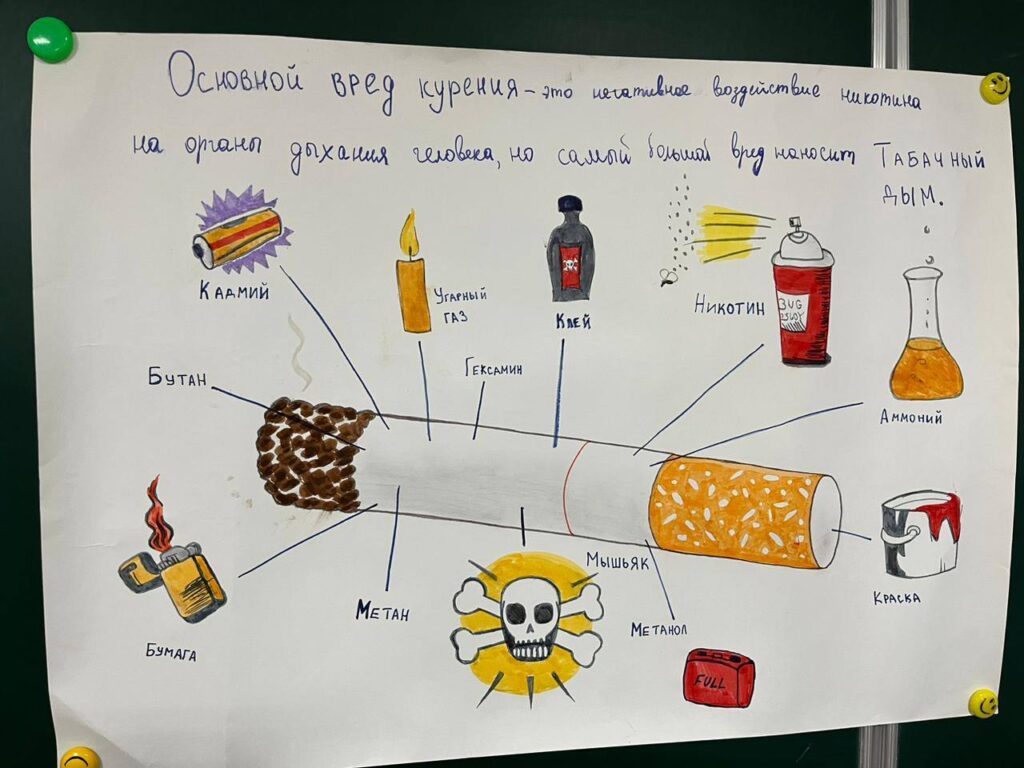 Основной вред курения – это негативное воздействие никотина
на органы дыхания человека, но самый большой вред наносит Табачный
дым.
Кадмий
Угарный
газ
Клей
Никотин
BUG
Бутан
Гексамин
Аммоний
Бумага
Метан
Мышьяк
Метанол
Краска
FULL